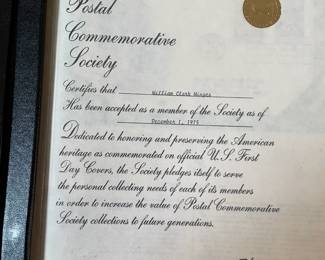 Postal
Commemorative
Society
Certifies that William Clark Minges
Has been accepted as a member of the Society as of
December 1, 1975
Dedicated to honoring and preserving the American
heritage as commemorated on official U.S. First
Day Covers, the Society pledges itself to serve
the personal collecting needs of each of its members
in order to increase the value of Postal Commemorative
Society collections to future generations.